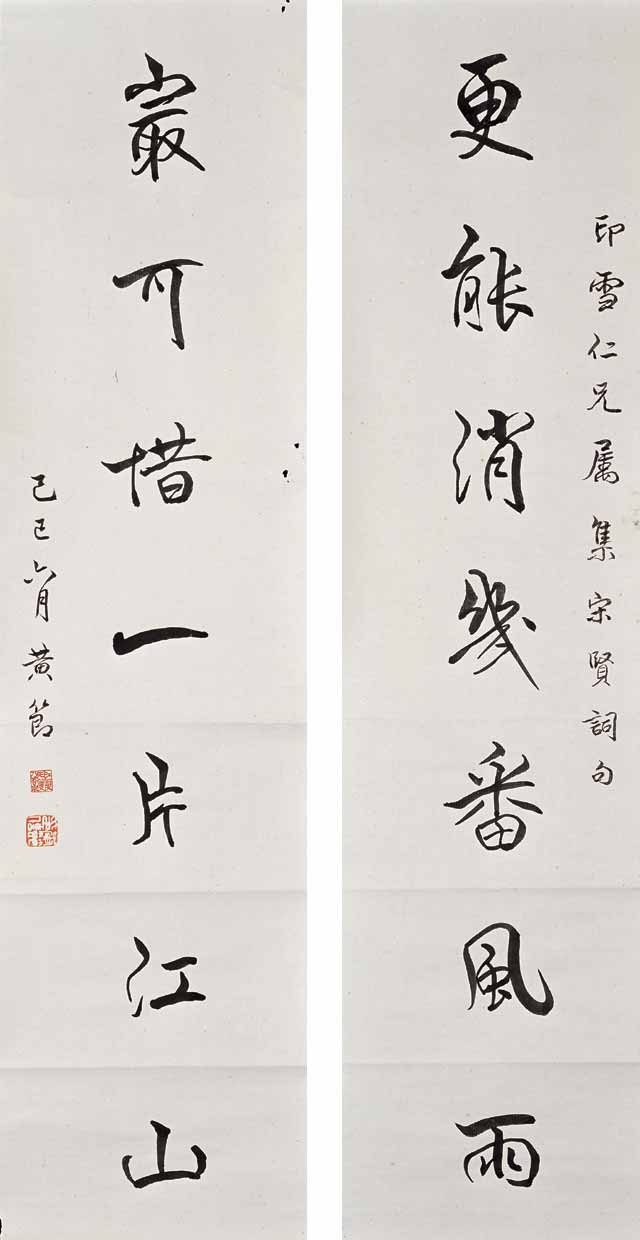 印雪仁兄属集宋賢詞句
更能消幾番風雨
冣可惜一片江山
己巳六月黄節